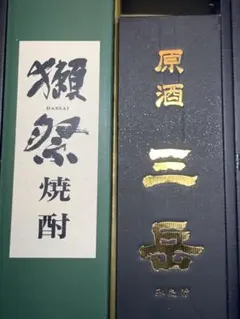 獺祭
DASSAI
焼酎
原酒
三岳